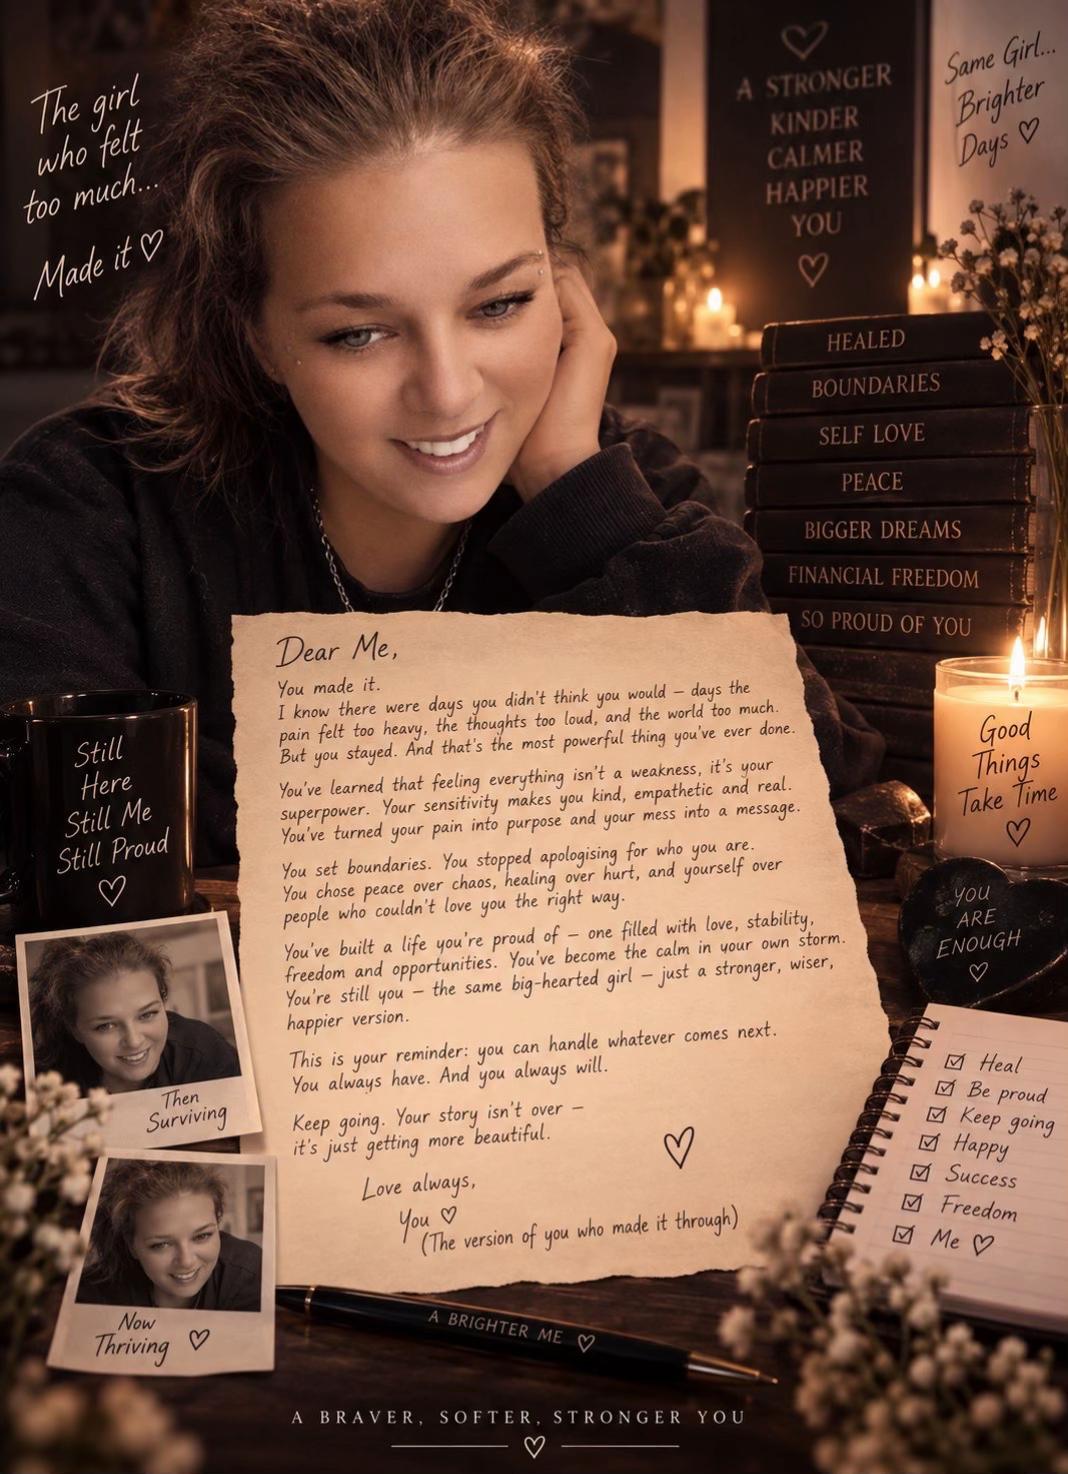 The girl
who felt
too much...
Made it ♡
♡
A STRONGER
KINDER
CALMER
HAPPIER
YOU
♡
Same Girl...
Brighter
Days ♡
HEALED
BOUNDARIES
SELF LOVE
PEACE
BIGGER DREAMS
FINANCIAL FREEDOM
SO PROUD OF YOU
Dear Me,
You made it.
I know there were days you didn't think you would — days the
pain felt too heavy, the thoughts too loud, and the world too much.
But you stayed. And that's the most powerful thing you've ever done.
You've learned that feeling everything isn't a weakness, it's your
superpower. Your sensitivity makes you kind, empathetic and real.
You've turned your pain into purpose and your mess into a message.
You set boundaries. You stopped apologising for who you are.
You chose peace over chaos, healing over hurt, and yourself over
people who couldn't love you the right way.
You've built a life you're proud of — one filled with love, stability,
freedom and opportunities. You've become the calm in your own storm.
You're still you — the same big-hearted girl — just a stronger, wiser,
happier version.
This is your reminder: you can handle whatever comes next.
You always have. And you always will.
Keep going. Your story isn't over —
it's just getting more beautiful.
♡
Love always,
You ♡
(The version of you who made it through)
Still
Here
Still Me
Still Proud
♡
Good
Things
Take Time
♡
YOU
ARE
ENOUGH
♡
Then
Surviving
Now
Thriving ♡
☑ Heal
☑ Be proud
☑ Keep going
☑ Happy
☑ Success
☑ Freedom
☑ Me ♡
A BRIGHTER ME ♡
A BRAVER, SOFTER, STRONGER YOU
♡